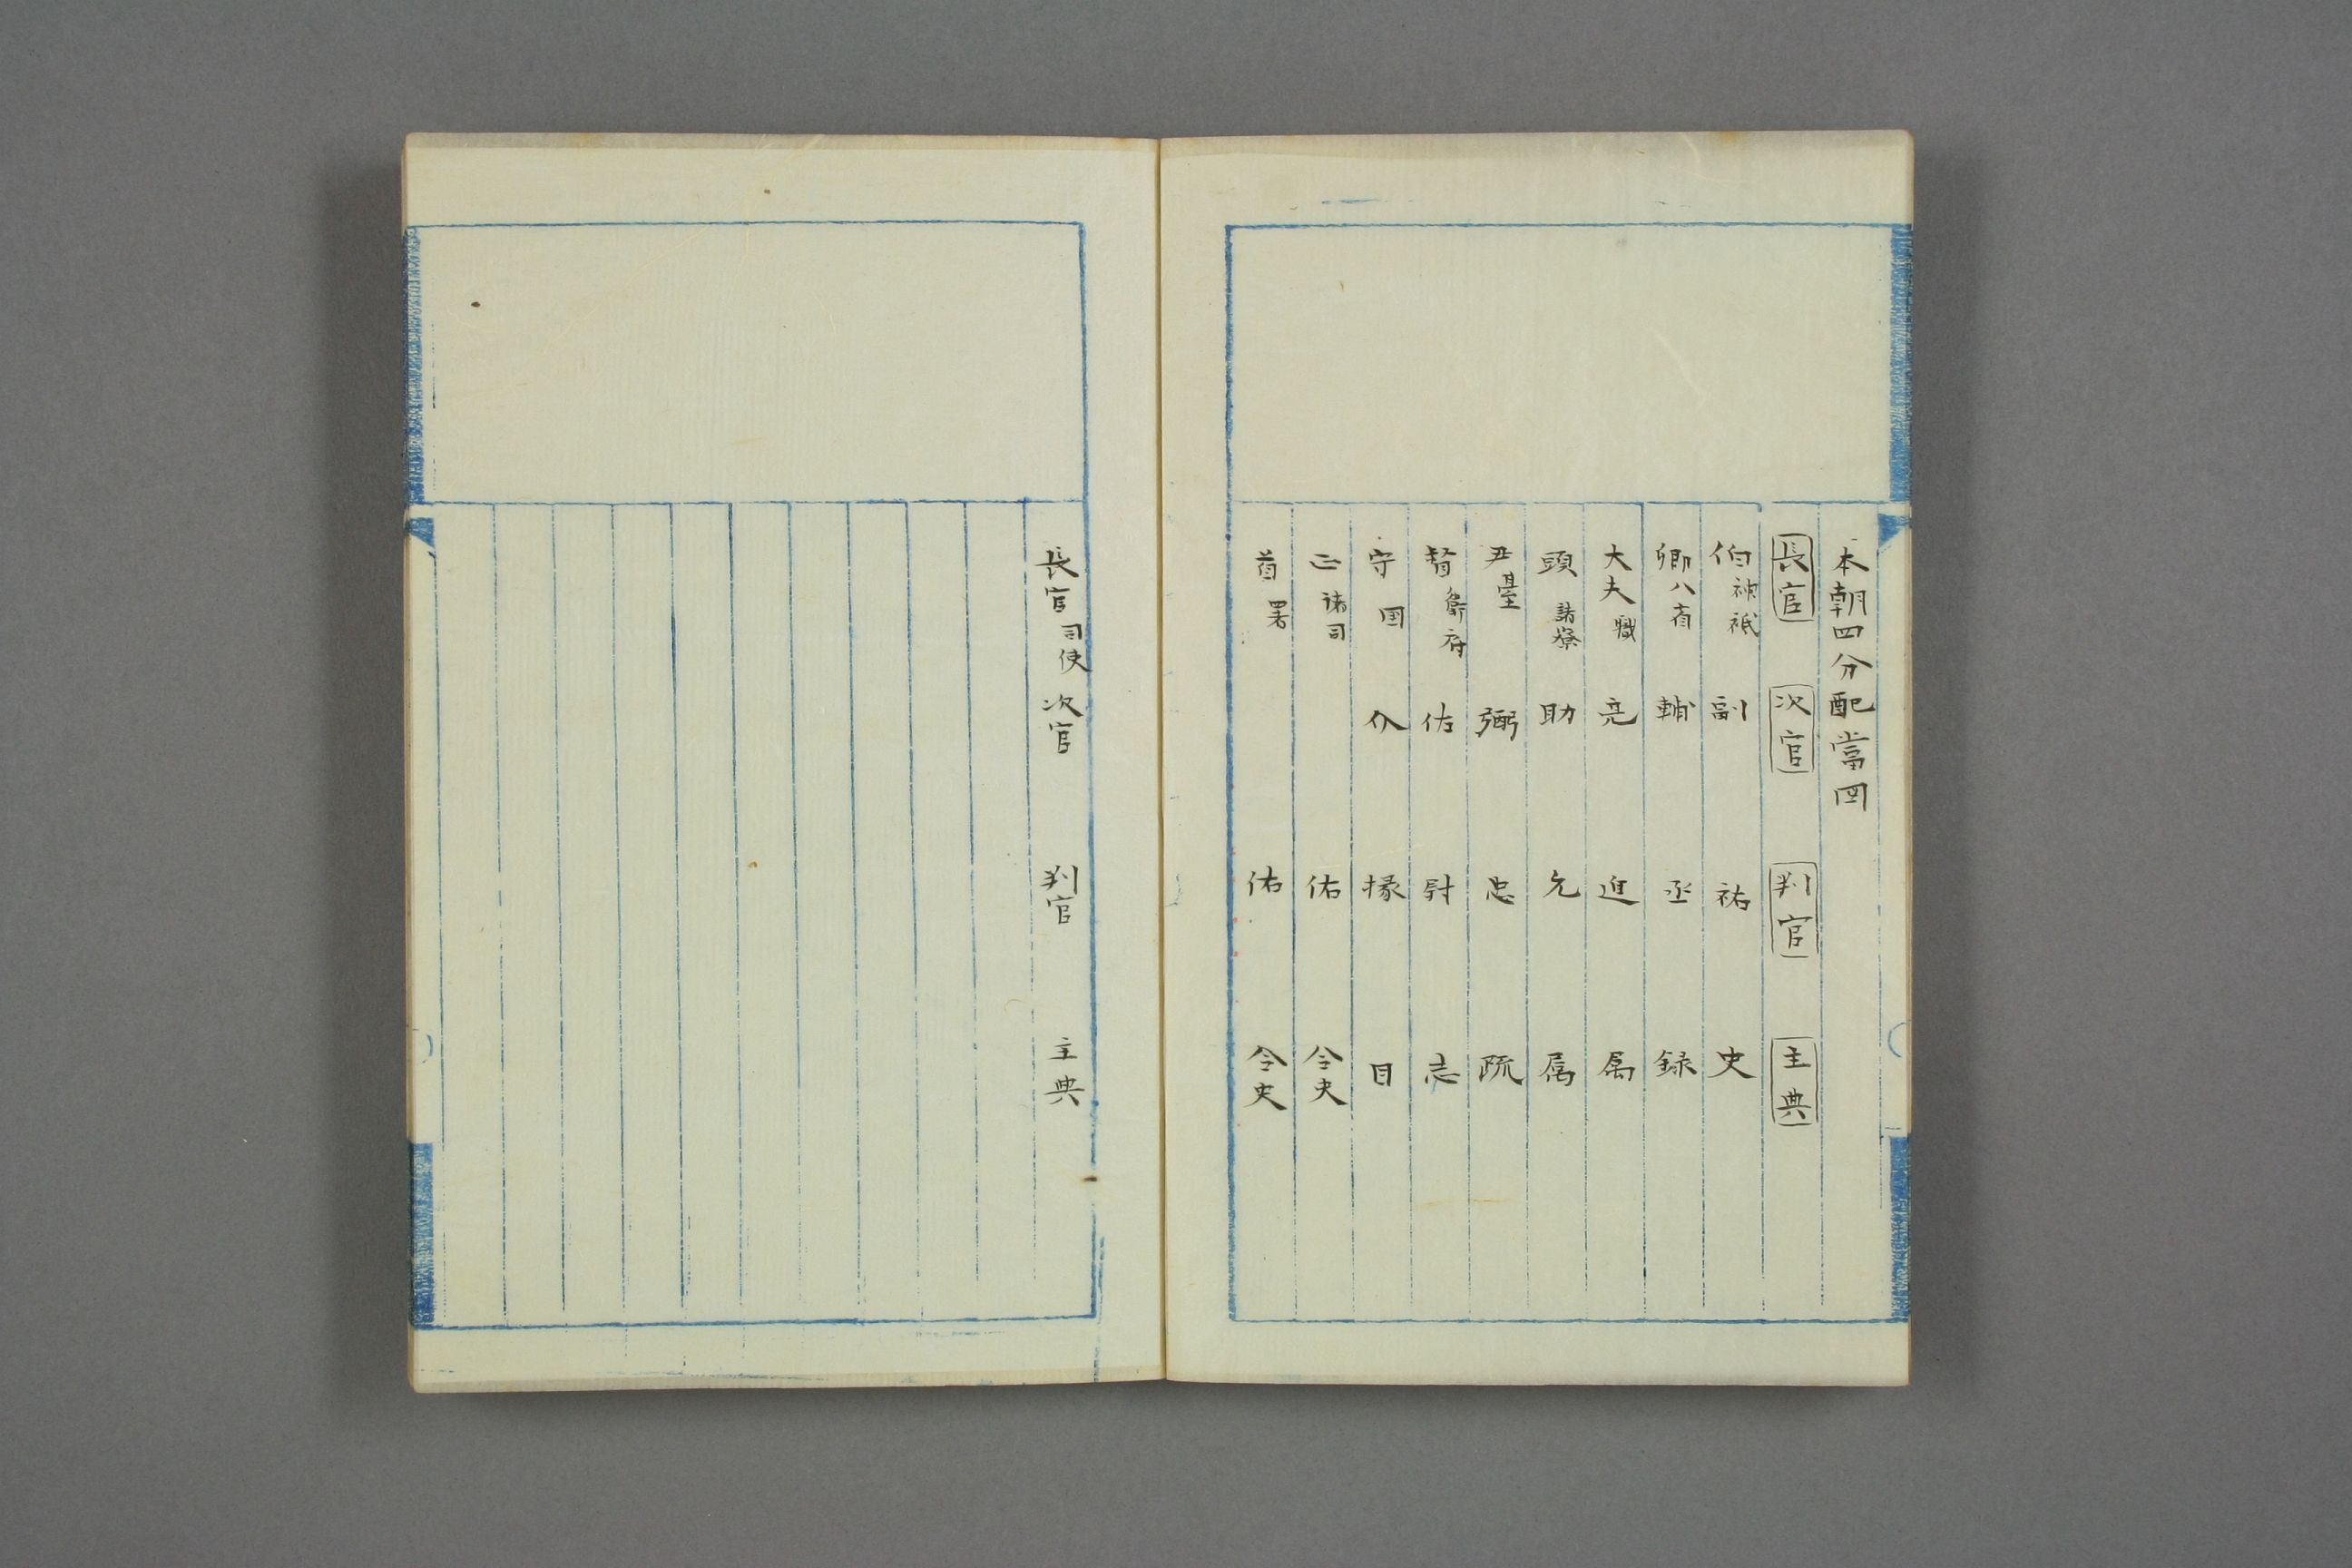 本朝四分配當図
長官 次官 判官 主典
伯 神祇 副 祐 史
卿 八省 輔 丞 録
大夫 職 亮 進 属
頭 諸寮 助 允 属
尹 臺 弼 忠 疏
督 衛府 佐 尉 志
守 国 介 掾 目
正 諸司 佑 令史
首 署 佑 令史
長官 司使 次官 判官 主典